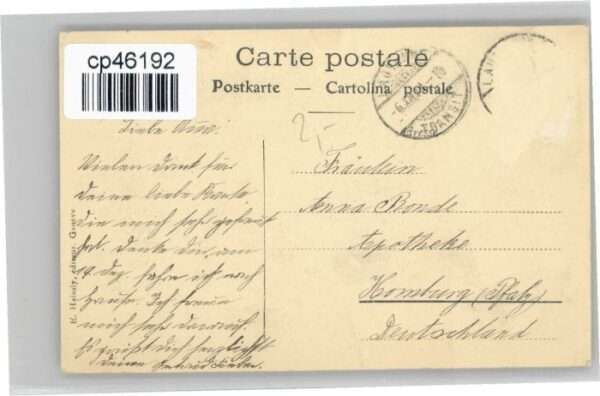 cp46192
Carte postale
Postkarte — Cartolina postale
TRANSIT
2,-
Liebe Anna!
Vielen Dank für
deine liebe Karte,
die mich sehr gefreut
hat. Denke Dir, am
19. Dez. fahre ich nach
Hause. Ich freue
mich sehr darauf.
Es grüßt Dich herzlichst
deine
Fräulein
Anna Bonde
Apotheke
Homburg (Pfalz)
Deutschland